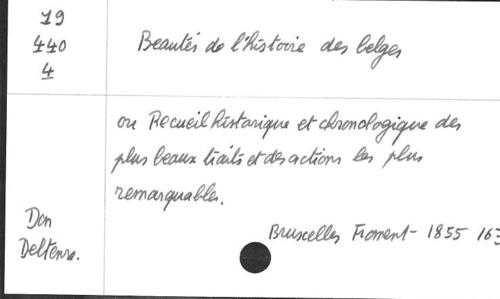 19
440
4
Beautés de l'histoire des belges
ou Recueil historique et chronologique des
plus beaux traits et des actions les plus
remarquables.
Don
Deltenre.
Bruxelles Froment - 1855 16: